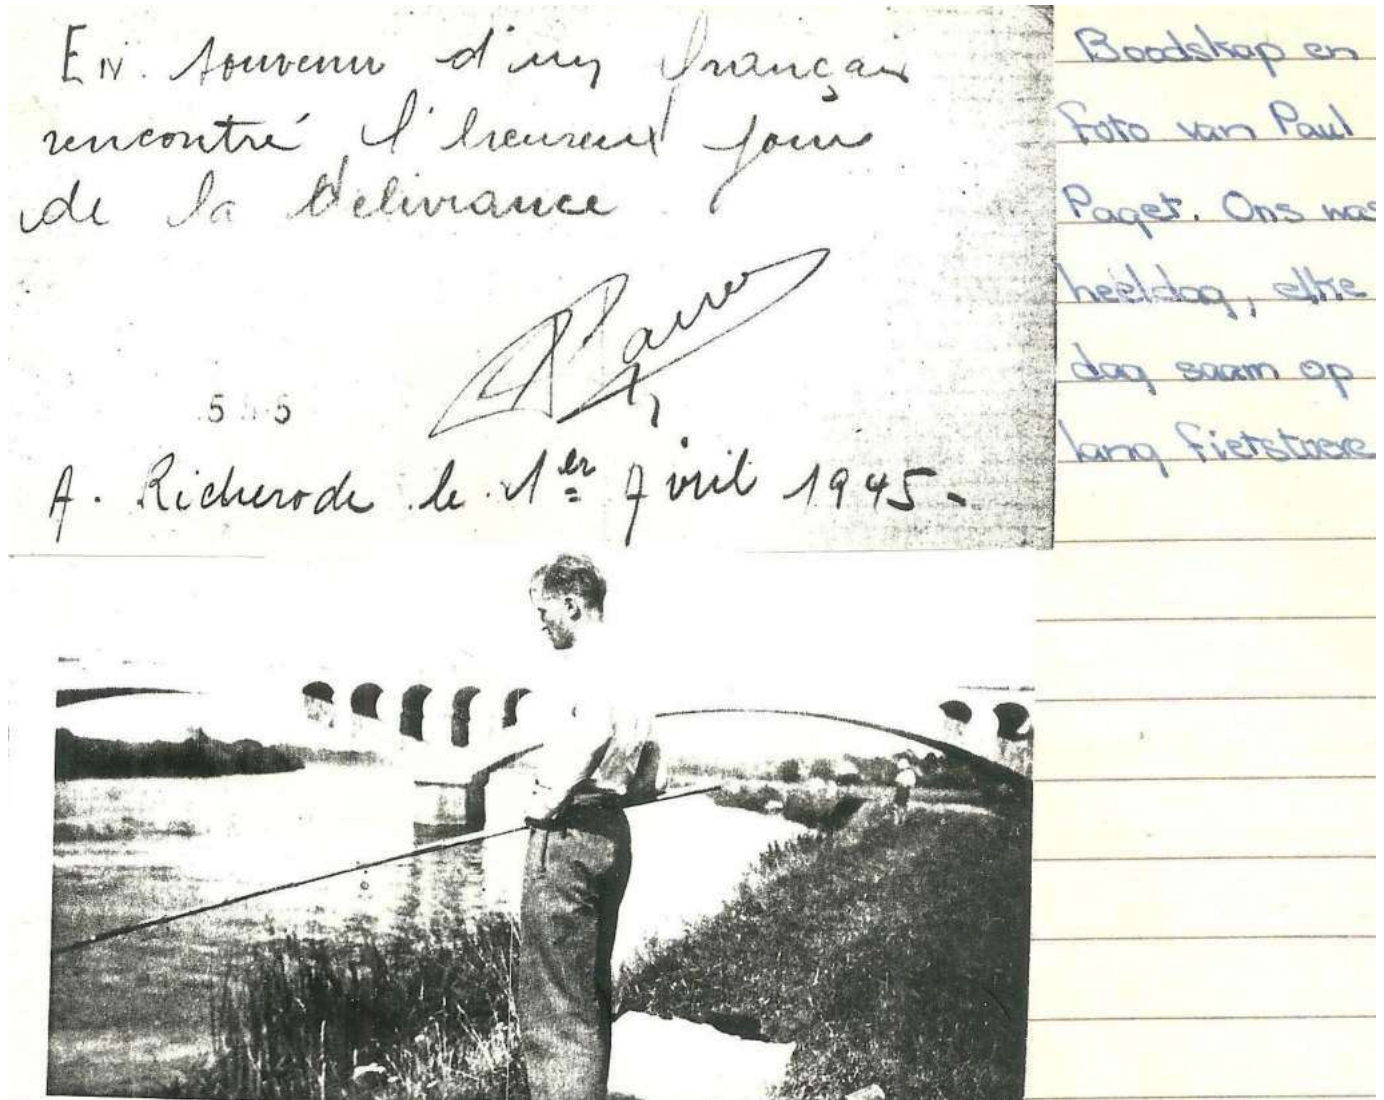 En souvenir d'un français
rencontré l'heureux jour
de la Délivrance
A. Richerode le 1er Avril 1945-
Boodskap en
Foto van Paul
Paget. Ons was
heéldag, elke
dag saam op
lang fietstoere